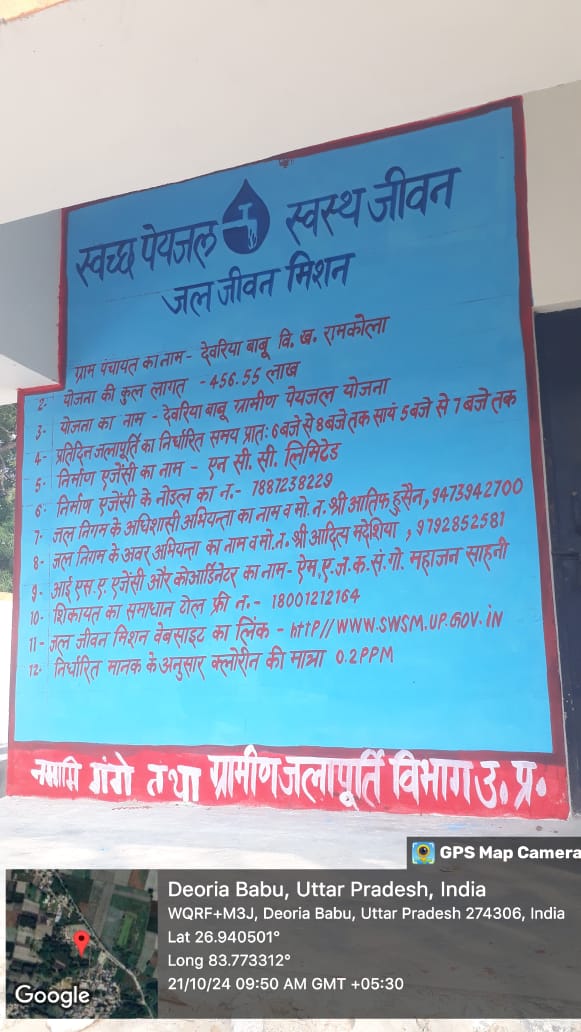 स्वच्छ पेयजल स्वस्थ जीवन
जल जीवन मिशन
ग्राम पंचायत का नाम - देवरिया बाबू वि. ख. रामकोला
2- योजना की कुल लागत - 456.55 लाख
3- योजना का नाम - देवरिया बाबू ग्रामीण पेयजल योजना
4- प्रतिदिन जलापूर्ति का निर्धारित समय प्रातः 6 बजे से 8 बजे तक सायं 5 बजे से 7 बजे तक
5- निर्माण एजेंसी का नाम - एन सी. सी. लिमिटेड
6- निर्माण एजेंसी के नोडल का न.- 7887238229
7- जल निगम के अधिशासी अभियन्ता का नाम व मो. न. श्री आतिफ हुसैन, 9473942700
8- जल निगम के अवर अभियन्ता का नाम व मो. न. श्री आदित्य मदेशिया , 9792852581
9- आई एस. ए. एजेंसी और कोआर्डिनेटर का नाम- ऐम. ए. ज. क. सं. गो. महाजन साहनी
10- शिकायत का समाधान टोल फ्री न.- 18001212164
11- जल जीवन मिशन वेबसाइट का लिंक - http//WWW.SWSM.UP.GOV.iN
12- निर्धारित मानक के अनुसार क्लोरीन की मात्रा 0.2PPM
नमामि गंगे तथा ग्रामीण जलापूर्ति विभाग उ. प्र.
GPS Map Camera
Deoria Babu, Uttar Pradesh, India
WQRF+M3J, Deoria Babu, Uttar Pradesh 274306, India
Lat 26.940501°
Long 83.773312°
21/10/24 09:50 AM GMT +05:30
Google